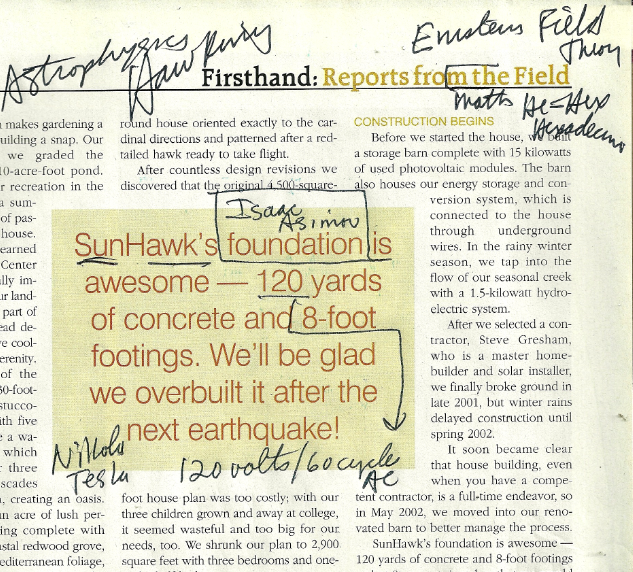 Astrophysics
Einsteins Field
Firsthand: Reports from the Field
Maths
makes gardening a
uilding a snap. Our
we graded the
10-acre-foot pond.
r recreation in the
a sum-
of pas-
house.
earned
Center
lly im-
ur land-
part of
ead de-
ve cool-
erenity.
of the
30-foot-
stucco-
ith five
e a wa-
which
r three
scades
, creating an oasis.
n acre of lush per-
ing complete with
astal redwood grove,
editerranean foliage,
round house oriented exactly to the car-
dinal directions and patterned after a red-
tailed hawk ready to take flight.
After countless design revisions we
discovered that the original 4,500-square-
Isaac
Asimov
SunHawk's foundation is
awesome — 120 yards
of concrete and 8-foot
footings. We'll be glad
we overbuilt it after the
next earthquake!
Nikola
Tesla
120 volts/60 cycle
AC
foot house plan was too costly; with our
three children grown and away at college,
it seemed wasteful and too big for our
needs, too. We shrunk our plan to 2,900
square feet with three bedrooms and one-
CONSTRUCTION BEGINS
Before we started the house, we built
a storage barn complete with 15 kilowatts
of used photovoltaic modules. The barn
also houses our energy storage and con-
version system, which is
connected to the house
through underground
wires. In the rainy winter
season, we tap into the
flow of our seasonal creek
with a 1.5-kilowatt hydro-
electric system.
After we selected a con-
tractor, Steve Gresham,
who is a master home-
builder and solar installer,
we finally broke ground in
late 2001, but winter rains
delayed construction until
spring 2002.
It soon became clear
that house building, even
when you have a compe-
tent contractor, is a full-time endeavor, so
in May 2002, we moved into our reno-
vated barn to better manage the process.
SunHawk's foundation is awesome —
120 yards of concrete and 8-foot footings